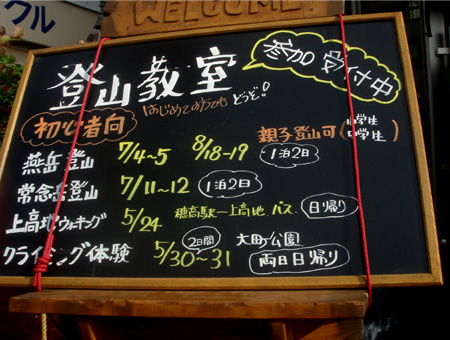 クル
WELCOME!
登山教室
参加受付中
はじめての方もどうぞ!
初心者向
親子登山可(小学生 中学生
燕岳登山 7/4~5 8/18-19 1泊2日
常念岳登山 7/11~12 1泊2日
上高地ウォーキング 5/24 穂高駅ー上高地 バス 日帰り
クライミング体験 5/30~31 2日間 大町公園 両日日帰り